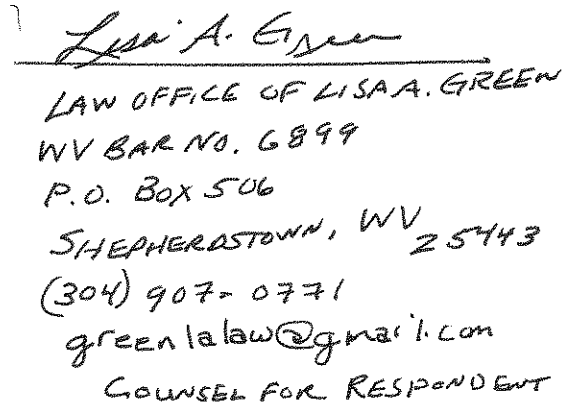 Lisa A. Green
LAW OFFICE OF LISA A. GREEN
WV BAR NO. 6899
P.O. BOX 506
SHEPHERDSTOWN, WV 25443
(304) 907-0771
greenlalaw@gmail.com
COUNSEL FOR RESPONDENT